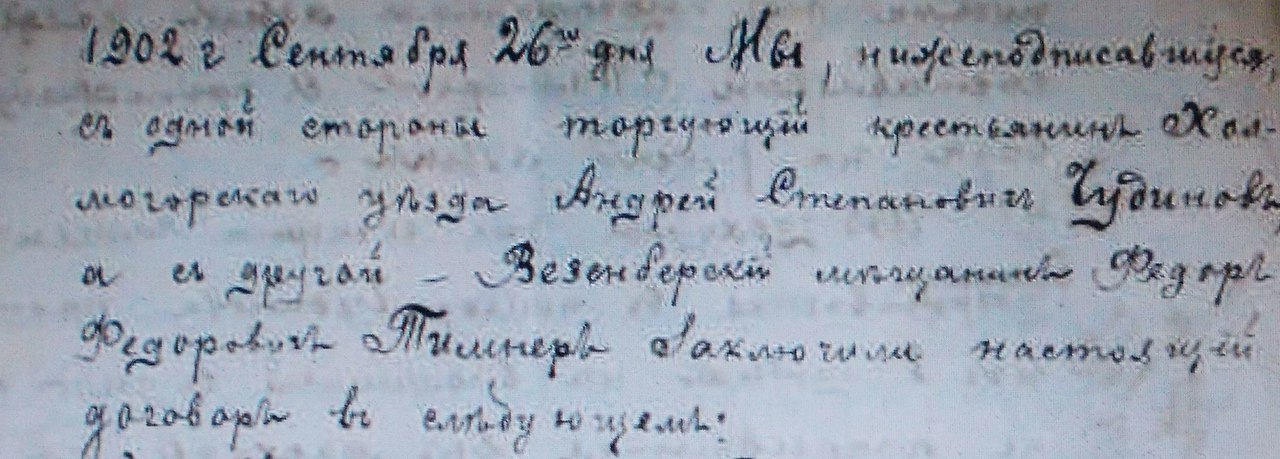 1902 г Сентября 26го дня Мы, нижеподписавшiеся,
съ одной стороны торгующiй крестьянинъ Хол-
могорскаго уѣзда Андрей Степановичъ Чудиновъ,
а съ другой – Везенбергскiй мѣщанинъ Федоръ
Федоровичъ Тилинеръ Заключили настоящiй
договоръ въ слѣдующемъ: